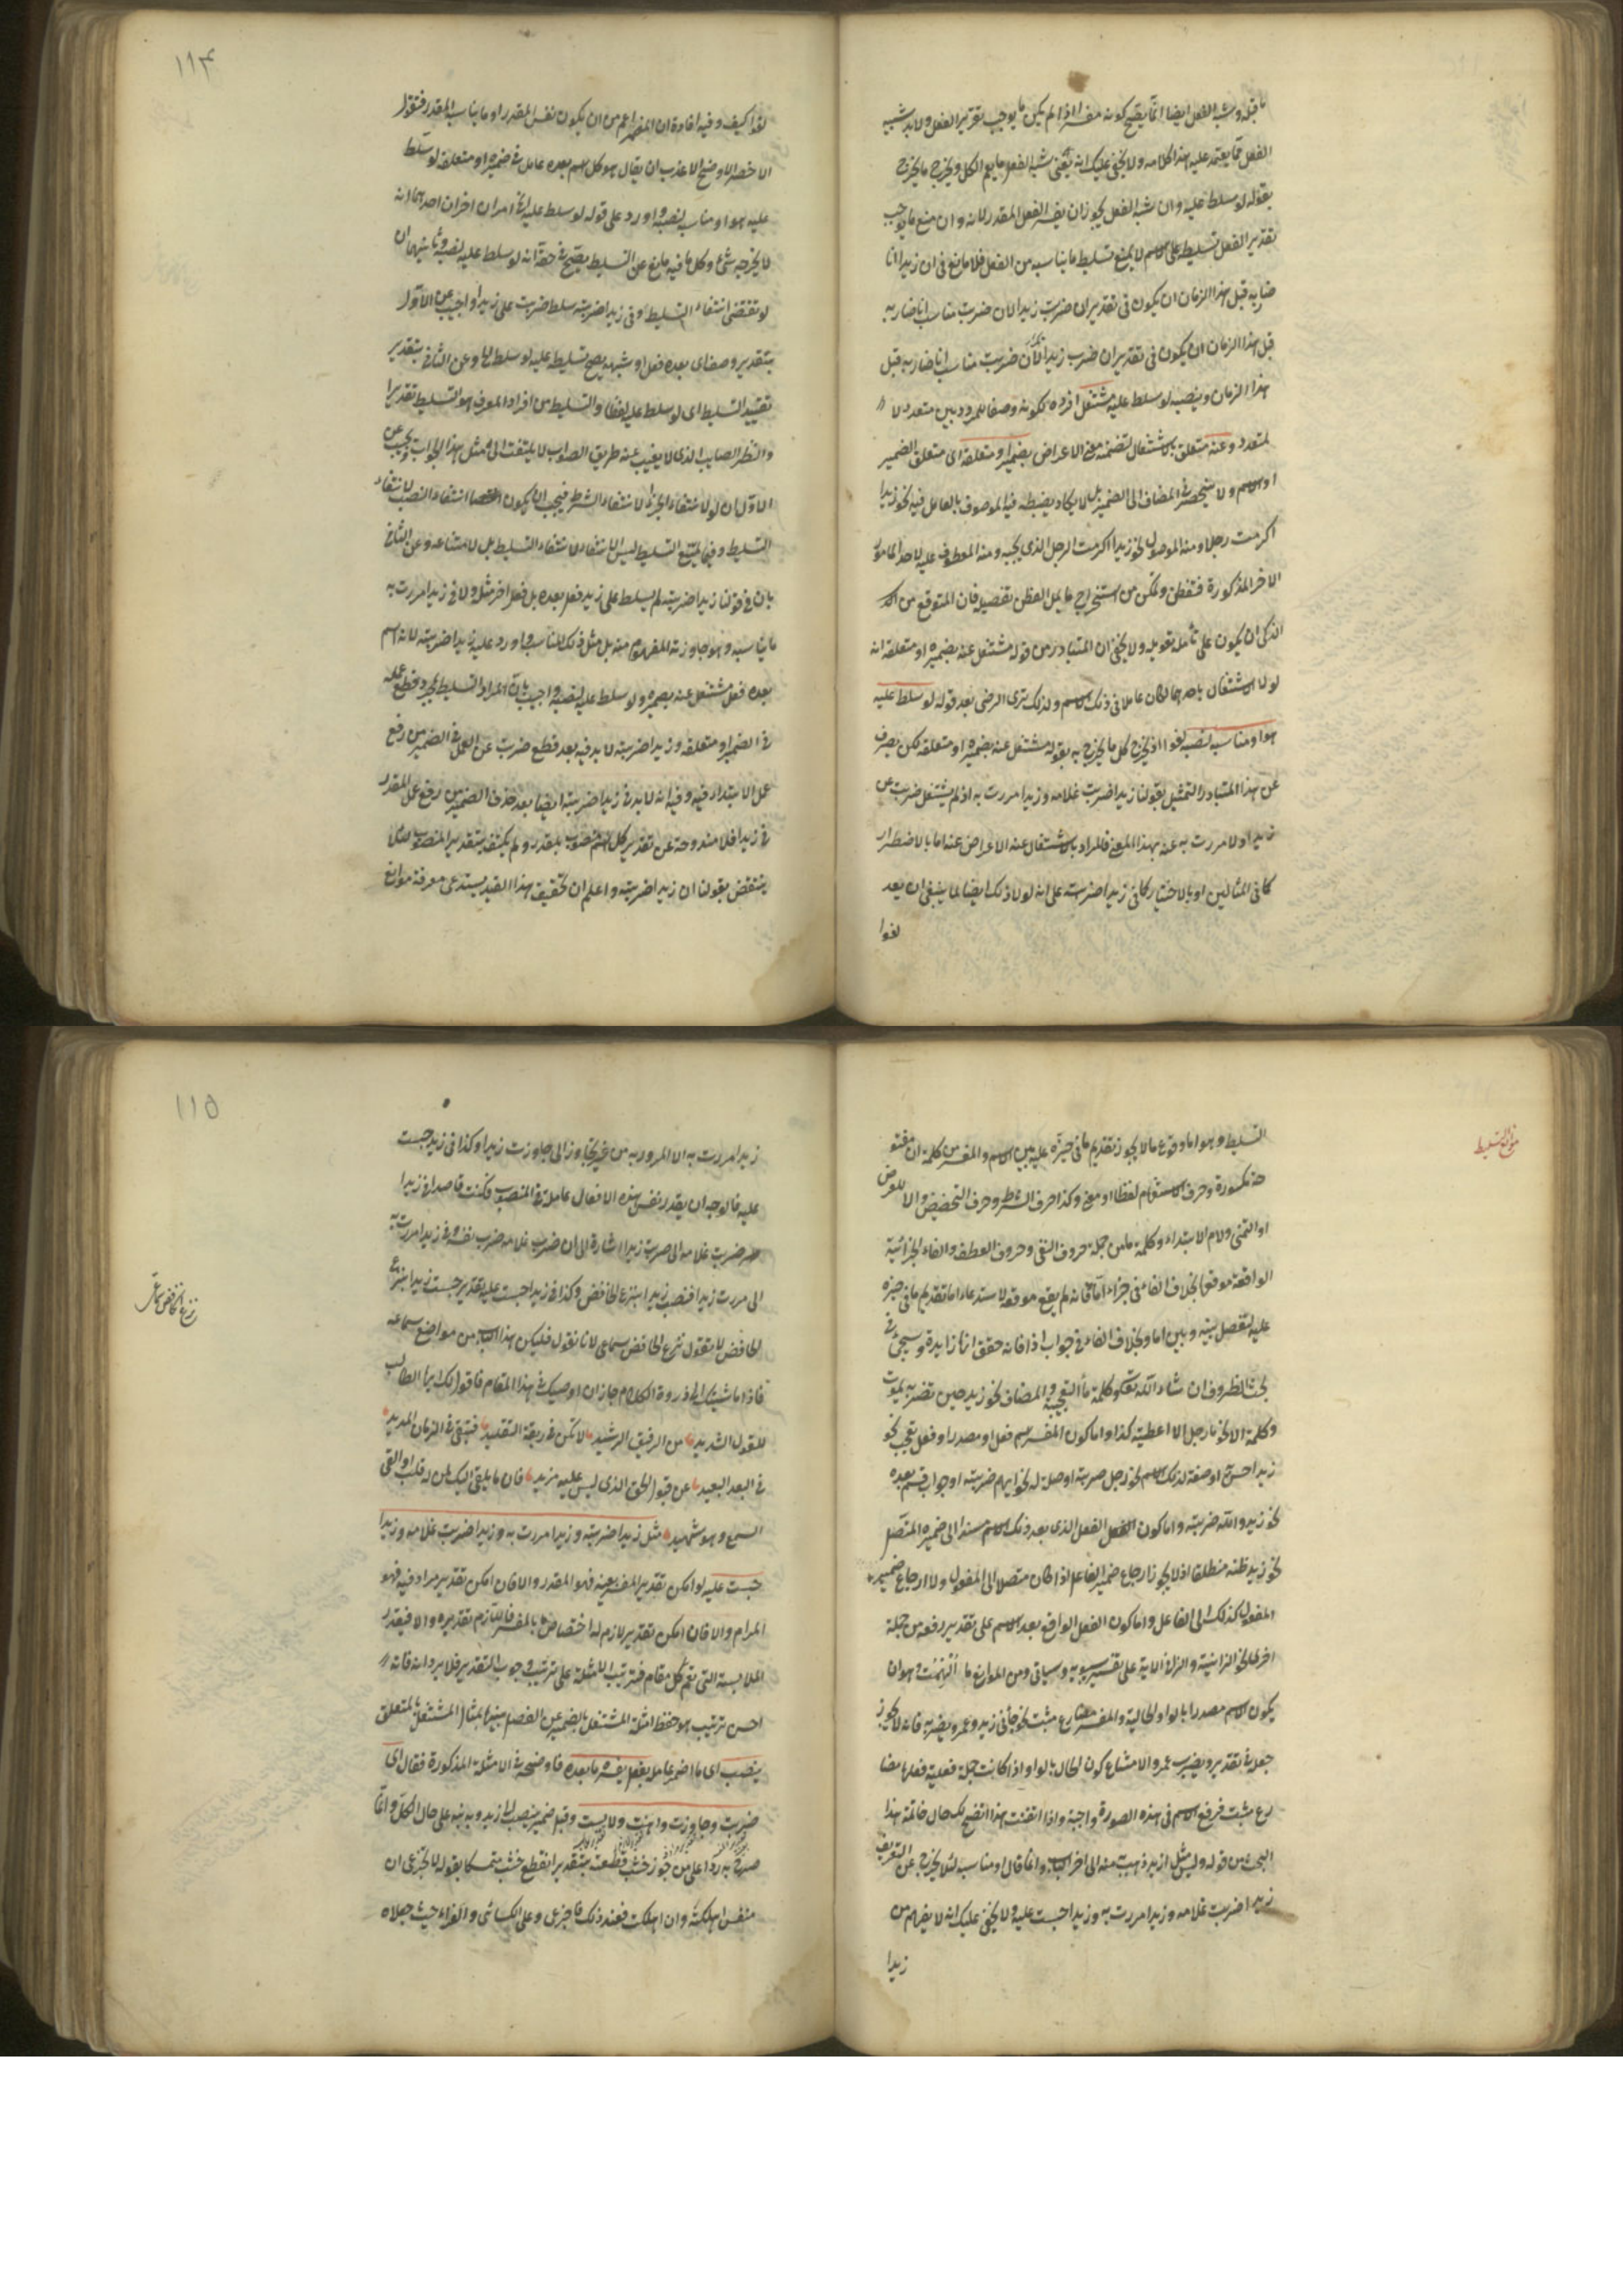 ما قبله وشبه الفعل ايضا انما يصح كونه مفسرا اذا لم يكن ما يوجب تقرير الفعل ولا بد شبيه
الفعل مما يعتمد عليه هذا كلامه ولا يخفى عليك انه يعنى شبه الفعل ما يعم الكل ويخرج ما يخرج
بقوله لو سلط عليه وان شبه الفعل يجوز ان يفسر الفعل المقدر لانه وان منع ما يوجب
تقدير الفعل تسليط على الاسم لا يمنع تسليط ما يناسبه من الفعل فلا مانع فى ان زيدا انا
ضاربه قبل هذا الزمان ان يكون فى تقدير ان ضربت زيدا الان ضربت مناسب انا ضاربه
قبل هذا الزمان ان يكون فى تقدير ان ضرب زيدا لان ضربت مناسب انا ضاربه قبل
هذا الزمان وينصبه لو سلط عليه مشتغل افرده لكونه وصفا للمردد بين متعدد لا
لمتعدد وعنه متعلق بالاشتغال لتضمنه معنى الاعراض بضميره او متعلقه اى متعلق الضمير
او الاسم ولا ينحصر فى المضاف الى الضمير بل لا يكاد يضبطه فيه الموصوف بالعامل فيه نحو زيدا
اكرمت رجلا ومنه الموصول نحو زيدا اكرمت الرجل الذى يحبه ومنه المعطوف عليه لاحد الامور
الاخر المذكورة فتفطن وتمكن من استخراج ما يمل الفطن تفصيله فان المتوقع من
الذكى ان يكون على تأمله تعويله ولا يخفى ان المتبادر من قوله مشتغل عنه بضميره او متعلقه انه
لولا الاشتغال باحدهما لكان عاملا فى ذلك الاسم ولذلك ترى الرضى بعد قوله لو سلط عليه
هو او مناسبه لنصبه لغوا اذ يخرج كل ما يخرج به بقوله مشتغل عنه بضميره او متعلقه لكن يصرف
عن هذا المتبادر التمثيل بقولنا زيدا ضربت غلامه وزيدا مررت به اذ لم يشتغل ضربت عن
زيد ولا مررت به عنه بهذا المعنى فالمراد بالاشتغال عنه الاعراض عنه اما بالاضطرار
كما فى المثالين او بالاختيار كما فى زيدا ضربته على انه لولا ذلك ايضا لما ينبغى ان يعد
لغوا
١١٤
لغوا كيف وفيه افادة ان المفسر اعم من ان يكون نفس المقدر او ما يناسب المقدر فنقول
الاخصر الاوضح الاعذب ان يقال هو كل اسم بعده عامل فى ضميره او متعلقه لو سلط
عليه هو او مناسبه لنصبه واورد على قوله لو سلط عليه امران اخران احدهما انه
لا يخرج به شئ وكل ما فيه مانع عن التسليط يصح فى حقه انه لو سلط عليه لنصبه وثانيهما ان
لو تقتضى انتفاء التسليط وفى زيدا ضربته سلط ضربت على زيدا واجيب عن الاول
بتقدير وصف اى بعده فعل او شبهه يصح تسليطه عليه لو سلط الخ وعن الثانى بتقدير
تقييد التسليط اى لو سلط عليه لفظا والتسليط من افراد المعرف هو التسليط تقديرا
والنظر الصايب الذى لا يغيب عنه طريق الصواب لا يلتفت الى مثل هذا الجواب ويجيب عن
الاول ان لو لانتفاء الجزاء لانتفاء الشرط فيجب ان يكون انتفاء النصب لانتفاء
التسليط وفيما يمتنع التسليط ليس الانتفاء لانتفاء التسليط بل لامتناعه وعن الثانى
بان فى قولنا زيدا ضربته لم يسلط على زيد فعل بعده بل فعل اخر مثله ولا فى زيدا مررت به
ما يناسبه وهو جاوزت المفهوم منه بل مثل ذلك المناسب واورد عليه زيدا ضربته لانه اسم
بعده فعل مشتغل عنه بضميره ولو سلط عليه لنصبه واجيب بان المراد التسليط بمجرد قطع عمله
فى الضمير او متعلقه وزيدا ضربته لا بد فيه بعد قطع ضربت عن العمل فى الضمير من رفع
عمل الابتداء فيه وفيه انه لا بد فى زيدا ضربته ايضا بعد حذف الضمير من رفع عمل المقدر
فى زيدا فلا مندوحة عن تقدير كل اسم منصوب بمقدر ولم يكتف بتقدير المنصوب لئلا
ينتقض بقولنا ان زيدا ضربته واعلم ان تحقيق هذا القيد يستدعى معرفة موانع
موانع التسليط
التسليط وهو اما وقوع ما لا يجوز تقديم ما فى حيزه عليه بين الاسم والمفسر من كلمة ان مفتو
حة مكسورة وحرف الاستفهام لفظا او معنى وكذا حرف الشرط وحرف التحضيض والا للعرض
او التمنى ولام الابتداء وكلمة ما من جملة حروف النفى وحروف العطف والفاء الجزائية
الواقعة موقعها بخلاف الفاء فى جزاء اما فانه لم يقع موقعه لاستدعاء اما تقديم ما فى حيزه
عليه لتفصل بينه وبين اما وبخلاف الفاء فى جواب اذا فانه حقق انها زايدة وسيجئ فى
بحث الظروف ان شاء الله تعالى وكلمة ما التعجبية والمضاف نحو زيد حين تضربه يموت
وكلمة الا نحو ما رجل الا اعطيته كذا واما كون المفسر اسم فعل او مصدرا وفعل تعجب نحو
زيد احسن به او صفة لذلك الاسم نحو رجل ضربته او صلة له نحو ايهم ضربته او جواب قسم بعده
نحو زيد والله ضربته واما كون الفعل الذى بعد ذلك الاسم مسندا الى ضميره المتصل
نحو زيد ظنه منطلقا اذ لا يجوز ارجاع ضمير الفاعل اذا كان متصلا الى المفعول ولا ارجاع ضمير
المفعول كذلك الى الفاعل واما كون الفعل الواقع بعد الاسم على تقدير رفعه من جملة
اخرى نحو الزانية والزانى الاية على تفسير سيبويه وسياتى ومن الموانع ما الهمت وهو ان
يكون الاسم مصدرا بالواو الحالية والمفسر مضارع مثبت نحو جائنى زيد وعمرو يضربه فانه لا يجوز
جعله فى تقدير ويضرب عمرو الامتناع كون الحال بالواو اذا كانت جملة فعلية فعلها مضا
رع مثبت فرفع الاسم فى هذه الصورة واجبة واذا اتقنت هذا اتضح لك حال خاتمة هذا
البحث من قوله وليس مثل ازيد ذهب به منه الى اخر الباب وانما قال او مناسبه لئلا يخرج عن التعريف
زيدا ضربت غلامه وزيدا مررت به وزيدا حبست عليه ولا يخفى عليك انه لا يفهم من
زيدا
١١٥
زيدا مررت به الا المرور به من غير تجاوز الى جاوزت زيدا وكذا فى زيد حبست
عليه فالوجه ان يقدر نفس هذه الافعال عاملة فى المنصوب فكنت قاصدا فى زيدا
ضربت غلامه الى ضربت زيدا اشارة الى ان ضرب غلامه ضرب نفسه وفى زيدا مررت به
الى مررت زيدا فنصب زيدا بنزع الخافض وكذا فى زيدا حبست عليه تقدير حبست زيدا بنزع
الخافض لا تقول نزع الخافض سماعى لانا نقول فليكن هذا الباب من مواضع سماعه
نزع الخافض سماعى
فاذا ما شيتك الى ذروة الكلام جاز ان اوصيك فى هذا المقام فاقول لك ايها الطالب
للقول السديد من الرفيق الرشيد لا تكن فى ربقة التقليد فتبقى فى الزمان المديد
فى البعد البعيد عن قبول الحق الذى ليس عليه مزيد فان ما يلقى اليك لمن له قلب او القى
السمع وهو شهيد مثل زيدا ضربته وزيدا مررت به وزيدا ضربت غلامه وزيدا
حبست عليه لو امكن تقدير المفسر بعينه فهو المقدر والا فان امكن تقدير مرادفه فهو
المرام والا فان امكن تقدير لازم له اختصاص بالمفسر فاللازم تقديره والا فيقدر
الملابسة التى تعم كل مقام فترتيب الامثلة على ترتيب وجوب التقدير فلا يرد انه فاته
احسن ترتيب هو حفظ امثلة المشتغل بالضمير عن الفصل بينها بمثال المشتغل بالمتعلق
ينصب اى ما اضمر عامله بفعل يفسره ما بعده فاوضحه فى الامثلة المذكورة فقال اى
ضربت وجاوزت واهنت ولابست وقيل ضمير ينصب الى زيد وبه نبه على حال الكل وانما
صرح به ردا على من جوز
منفس اهلكته وان اهلكت فعند ذلك فاجزعى وعلى الكسائى والفراء حيث جعلاه